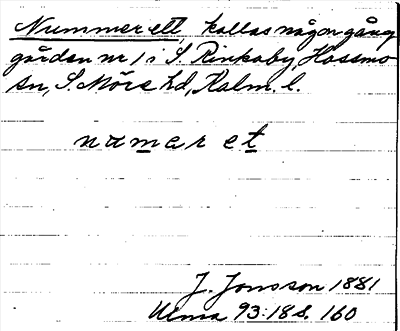 Nummer ett, kallas någon gång
gården nr 1 i S. Rinkaby, Hossmo
sn, S. Möre hd, Kalm. l.
namar et
J. Jonsson 1881
Ulma 93:18 s. 160